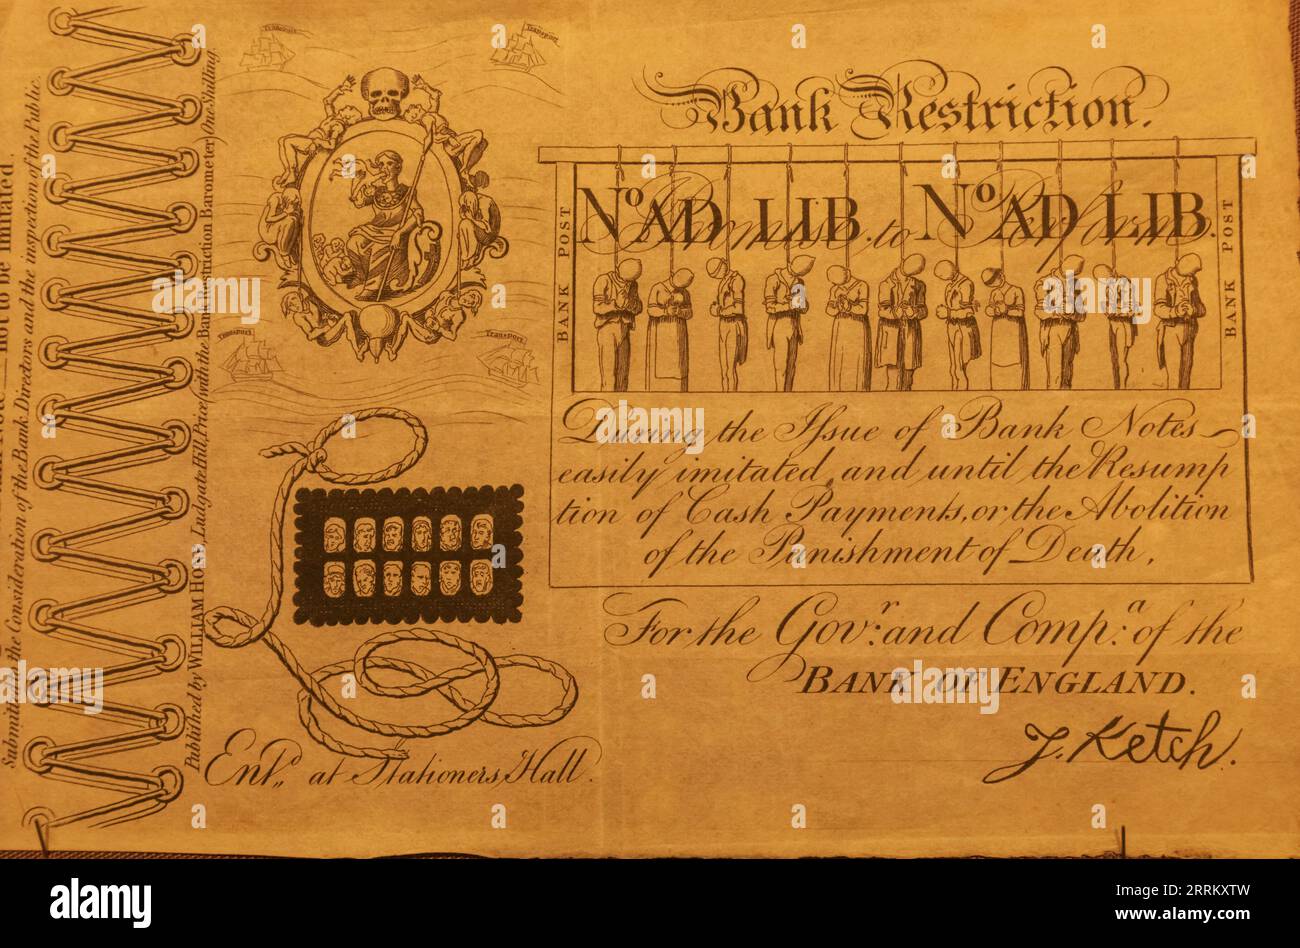 Submitted to the Consideration of the Bank Directors and the inspection of the Public.
not to be Imitated.
Published by WILLIAM HONE Ludgate Hill, Price (with the Bank Restriction Barometer) One Shilling.
Transport
Transport
Transport
Transport
Bank Restriction.
BANK POST
BANK POST
No. AD LIB. No. AD LIB.
Promise to Perform
During the Issue of Bank Notes
easily imitated, and until the Resump
tion of Cash Payments, or the Abolition
of the Punishment of Death,
For the Govr. and Compa. of the
BANK OF ENGLAND.
J. Ketch.
Entd. at Stationers Hall.
alamy
Image ID: 2RRKXTW
www.alamy.com